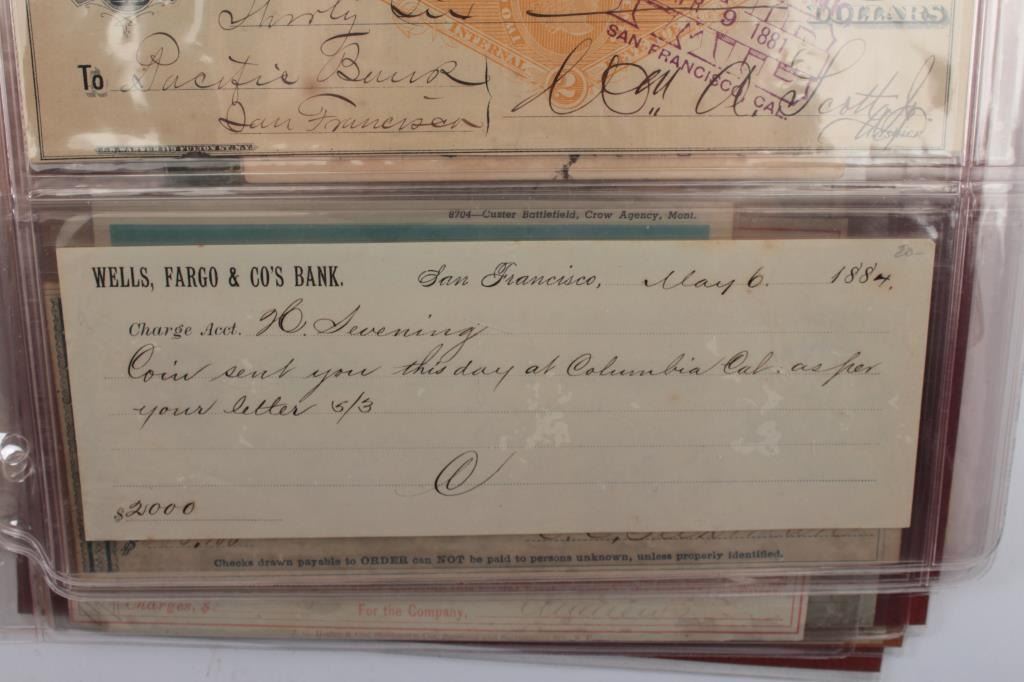 Thirty Six DOLLARS
INTERNAL
9 1881
SAN FRANCISCO, CAL.
To Pacific Bank
San Francisco
2
Wm A. Scott Jr.
8704—Custer Battlefield, Crow Agency, Mont.
20-
WELLS, FARGO & CO'S BANK. San Francisco, May 6. 1884.
Charge Acct. H. Sevening
Coin sent you this day at Columbia Cal. as per
your letter 5/3
$2000
Checks drawn payable to ORDER can NOT be paid to persons unknown, unless properly identified.
Charges, $
For the Company,